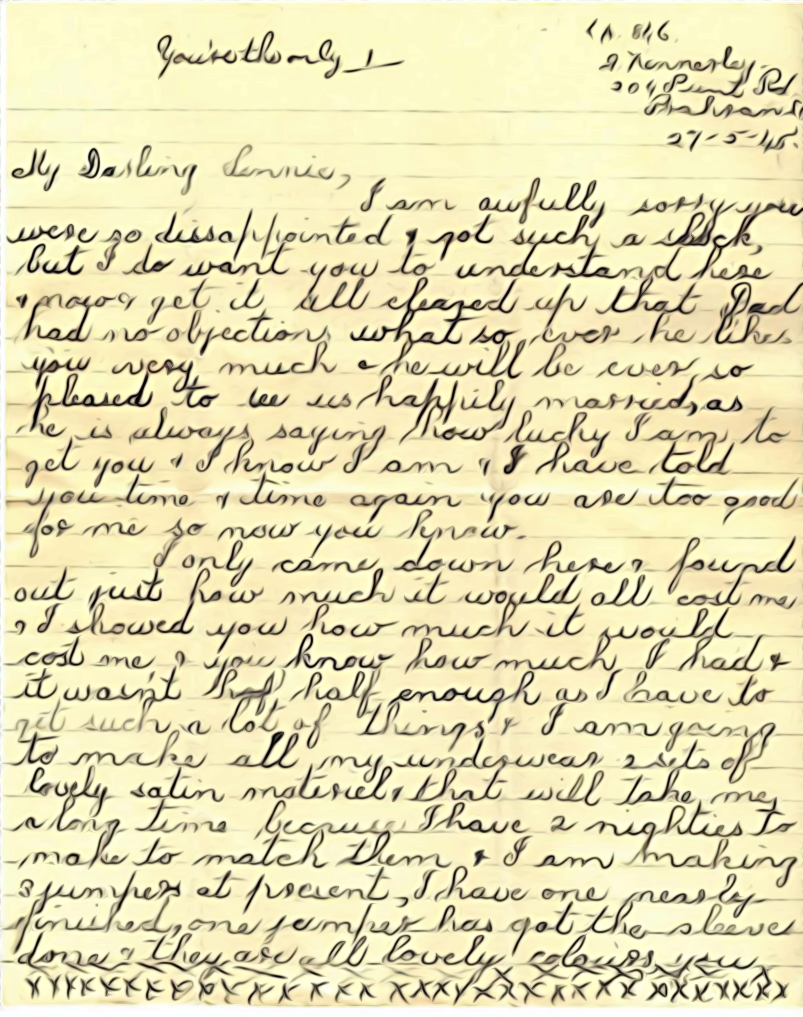 You're the only 1
LA. 816.
J. Kennerley.
204 Punt Rd
Prahran
27-5-45.
My Darling Lennie,
I am awfully sorry you
were so dissappointed & got such a shock,
but I do want you to understand here
& now & get it all cleared up that Dad
had no objections what so ever he likes
you very much & he will be ever so
pleased to see us happily married, as
he is always saying how lucky I am to
get you & I know I am & I have told
you time & time again you are too good
for me so now you know.
I only came down here & found
out just how much it would all cost me
& I showed you how much it would
cost me & you know how much I had &
it wasn't half enough as I have to
get such a lot of things & I am going
to make all my underwear 2 sets of
lovely satin materiel & that will take me
a long time because I have 2 nighties to
make to match them & I am making
3 jumpers at present, I have one nearly
finished, one jumper has got the sleeve
done & they are all lovely colours, you
XXXXXXXXXXXXXXXXXXXXXXXXXXXXXXXXX